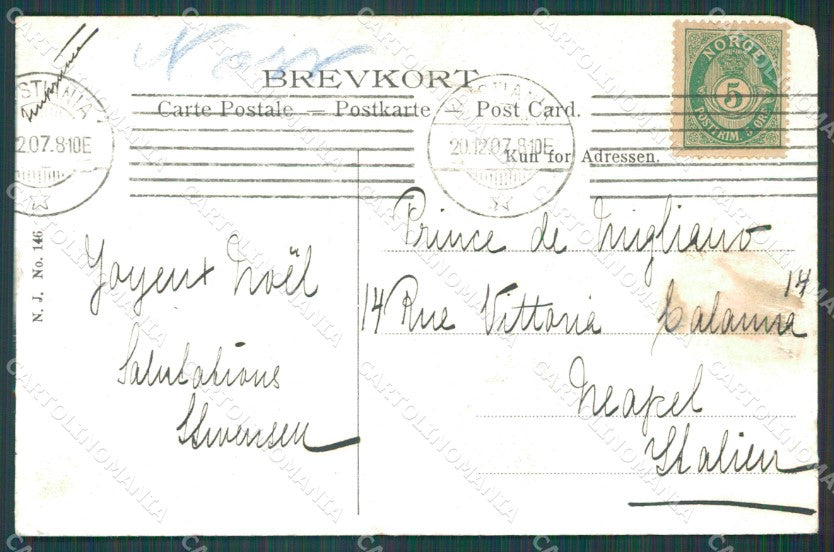 BREVKORT
Carte Postale — Postkarte — Post Card.
Kun for Adressen.
NORGE
5
POSTFRIM. 5 ØRE
20.12.07.8-10E
2.07.8-10E
N. J. No. 146
Joyeux Noël
Salutations
Prince de Migliano
14 Rue Vittoria Calanna 14
Neapel
Italien
CARTOLINOMANIA